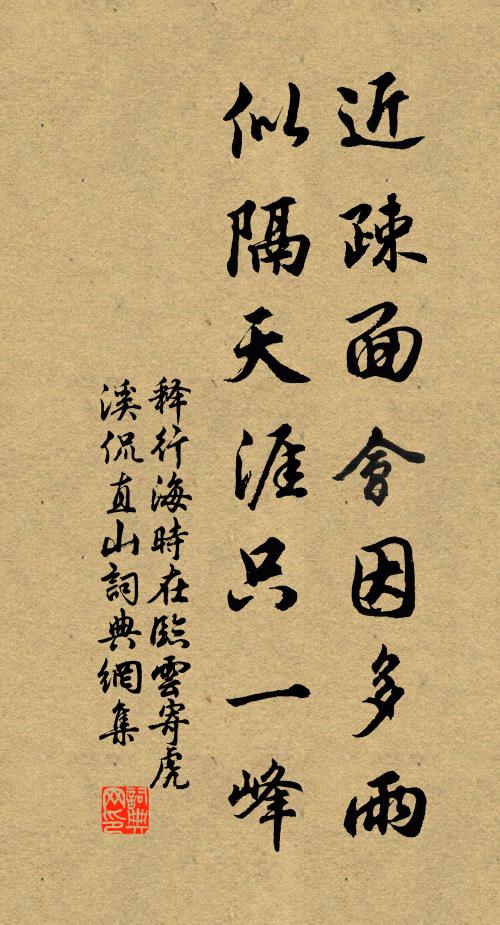 近疎面會因多雨
似隔天涯只一峰
释行海時在臨雲寄虎
溪侃直山詞典網集
詞典网印